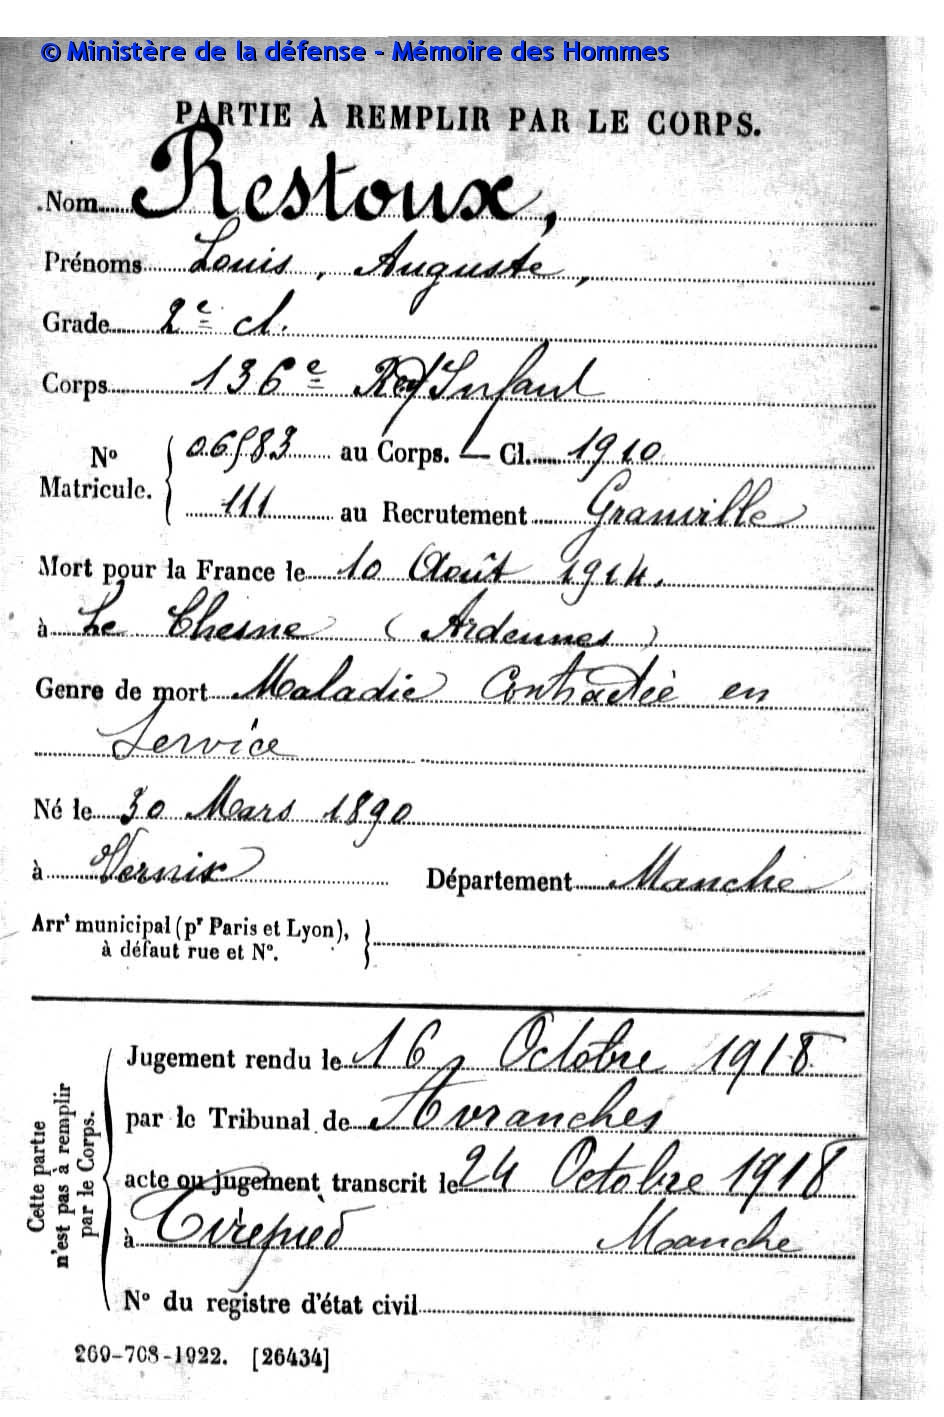 © Ministère de la défense - Mémoire des Hommes
PARTIE À REMPLIR PAR LE CORPS.
Nom Restoux,
Prénoms Louis, Auguste,
Grade 2e cl.
Corps 136e Regt Infant
No Matricule. 06583 au Corps. — Cl. 1910
111 au Recrutement Granville
Mort pour la France le 10 Août 1914.
à Le Chesne (Ardennes)
Genre de mort Maladie Contractée en
Service
Né le 30 Mars 1890
à Vernix Département Manche
Arrt municipal (pr Paris et Lyon),
à défaut rue et No.
Cette partie
n'est pas à remplir
par le Corps.
Jugement rendu le 16 Octobre 1918
par le Tribunal de Avranches
acte ou jugement transcrit le 24 Octobre 1918
à Tirepied Manche
No du registre d'état civil
269-708-1922. [26434]